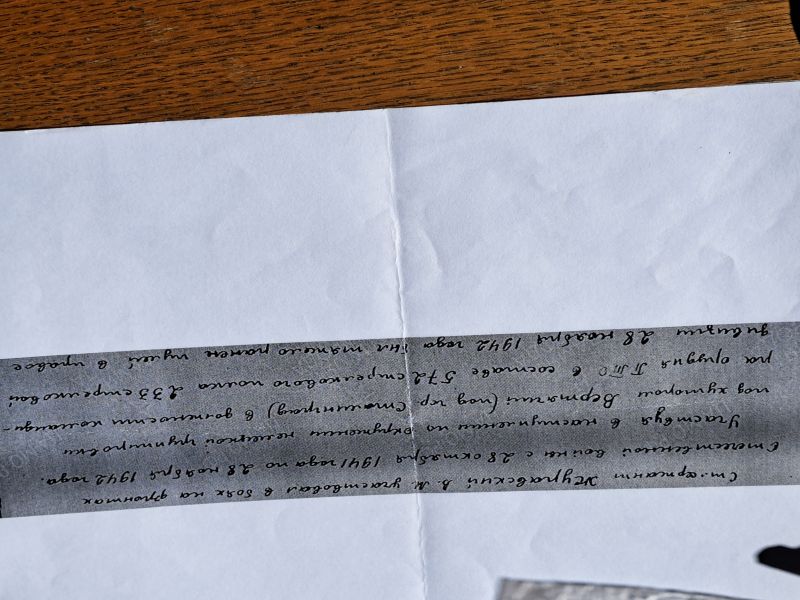 Ст. сержант Журавский В. М. участвовал в боях на фронтах
Отечественной войны с 28 октября 1941 года по 28 ноября 1942 года.
Участвуя в наступлении по окружению немецкой группировки
под хутором Вертячий (под гор Сталинград) в должности команди-
ра орудия ПТО в составе 572 стрелкового полка 233 стрелковой
дивизии 28 ноября 1942 года был тяжело ранен пулей в правое